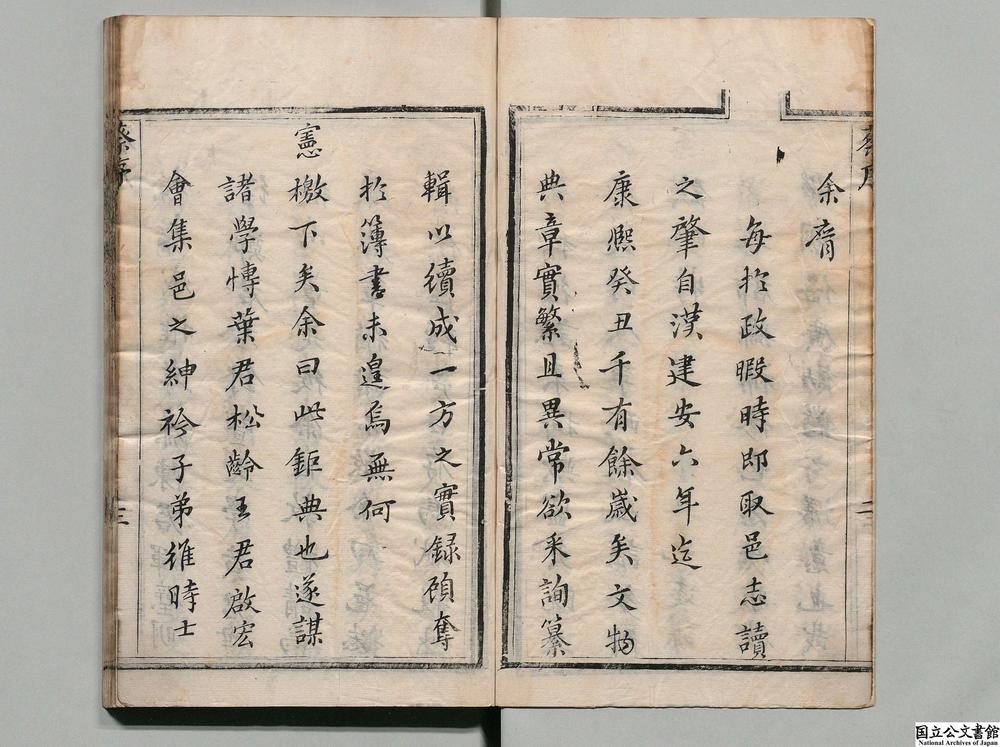 蔡序
二
余
每於政暇時即取邑志讀
之肇自漢建安六年迄
康熙癸丑千有餘歲矣文物
典章實繁且異常欲采詢纂
輯以續成一方之實録顧奪
於簿書未遑焉無何
憲檄下矣余曰此鉅典也遂謀
諸學博葉君松齡王君啟宏
會集邑之紳衿子弟維時士
蔡序
三
国立公文書館
National Archives of Japan